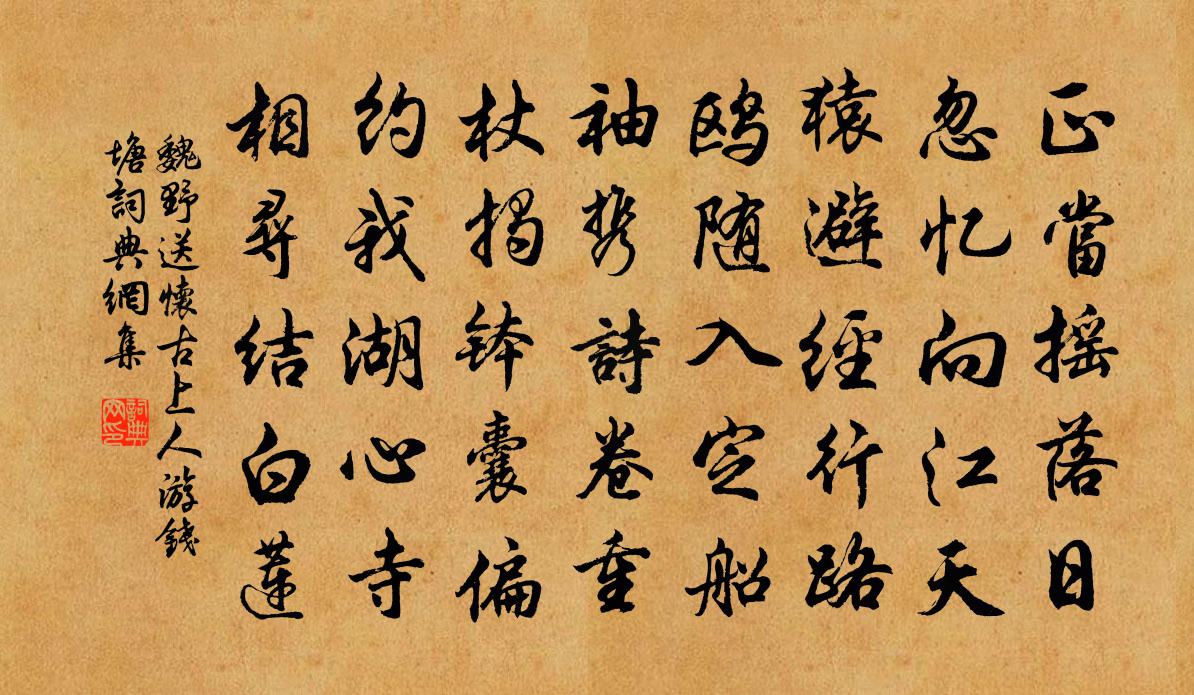 正當摇落日
忽忆向江天
猿避經行路
鸥随入定船
袖携詩卷重
杖揭钵囊偏
约我湖心寺
相尋结白蓮
魏野送懷古上人游錢
塘詞典網集
詞典
网印